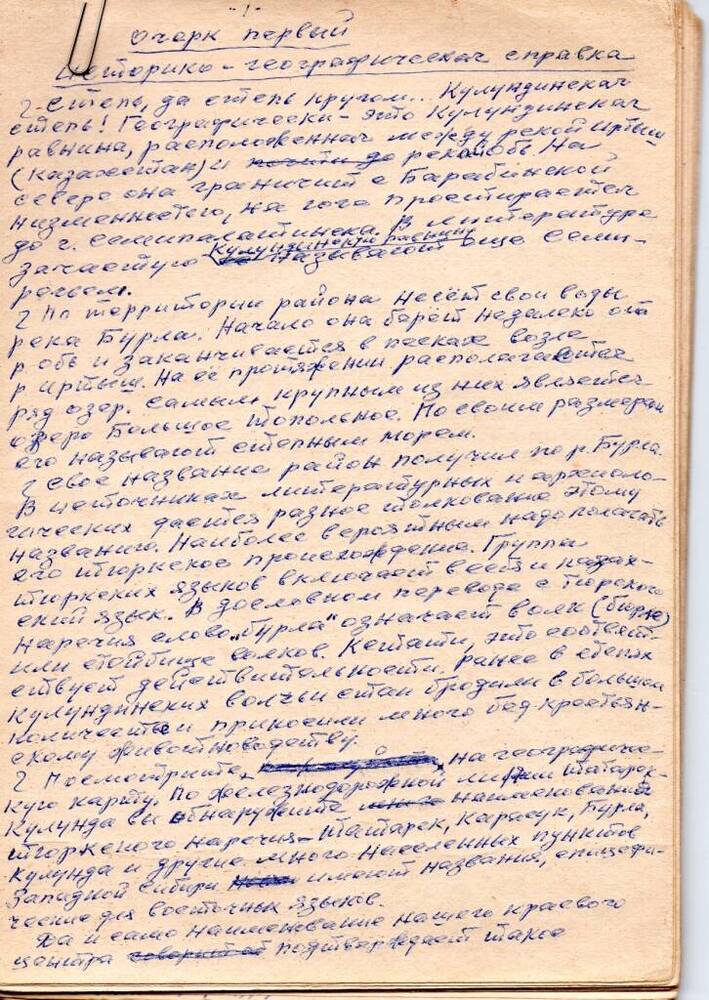 Очерк первый
Историко-географическая справка
Степь, да степь кругом.. Кулундинская
степь! Географически - это Кулундинская
равнина, расположенная между рекой Иртыш
(Казахстан) и почти до рекой Обь. На
севере она граничит с Барабинской
низменностью, на юге простирается
до г. Семипалатинска. В литературе
зачастую Кулундинскую равнину называют еще Семи-
речьем.
По территории района несёт свои воды
река Бурла. Начало она берёт недалеко от
р Обь и заканчивается в песках возле
р Иртыш. На её протяжении располагается
ряд озер. Самым крупным из них является
озеро Большое Топольное. По своим размерам
его называют степным морем.
Свое название район получил по р. Бурла.
В источниках литературных и археоло-
гических дается разное толкование этому
названию. Наиболее вероятным надо полагать
его тюркское происхождение. Группа
тюркских языков включает в себя и казах-
ский язык. В дословном переводе с тюрского
наречия слово „бурла" означает волк (бюре)
или стойбище волков. Кстати, это соответ-
ствует действительности. Ранее в степях
Кулундинских волчьи стаи бродили в большом
количестве и приносили много бед крестьян-
скому животноводству.
Посмотрите, на географиче-
кую карту. По железнодорожной линии Татарск-
Кулунда вы обнаружите много наименований
тюркского наречия - Татарск, Карасук, Бурла,
Кулунда и другие. Много населенных пунктов
Западной Сибири имеют названия, специфи-
ческие для восточных языков.
Да и само наименование нашего краевого
центра подтверждает такое